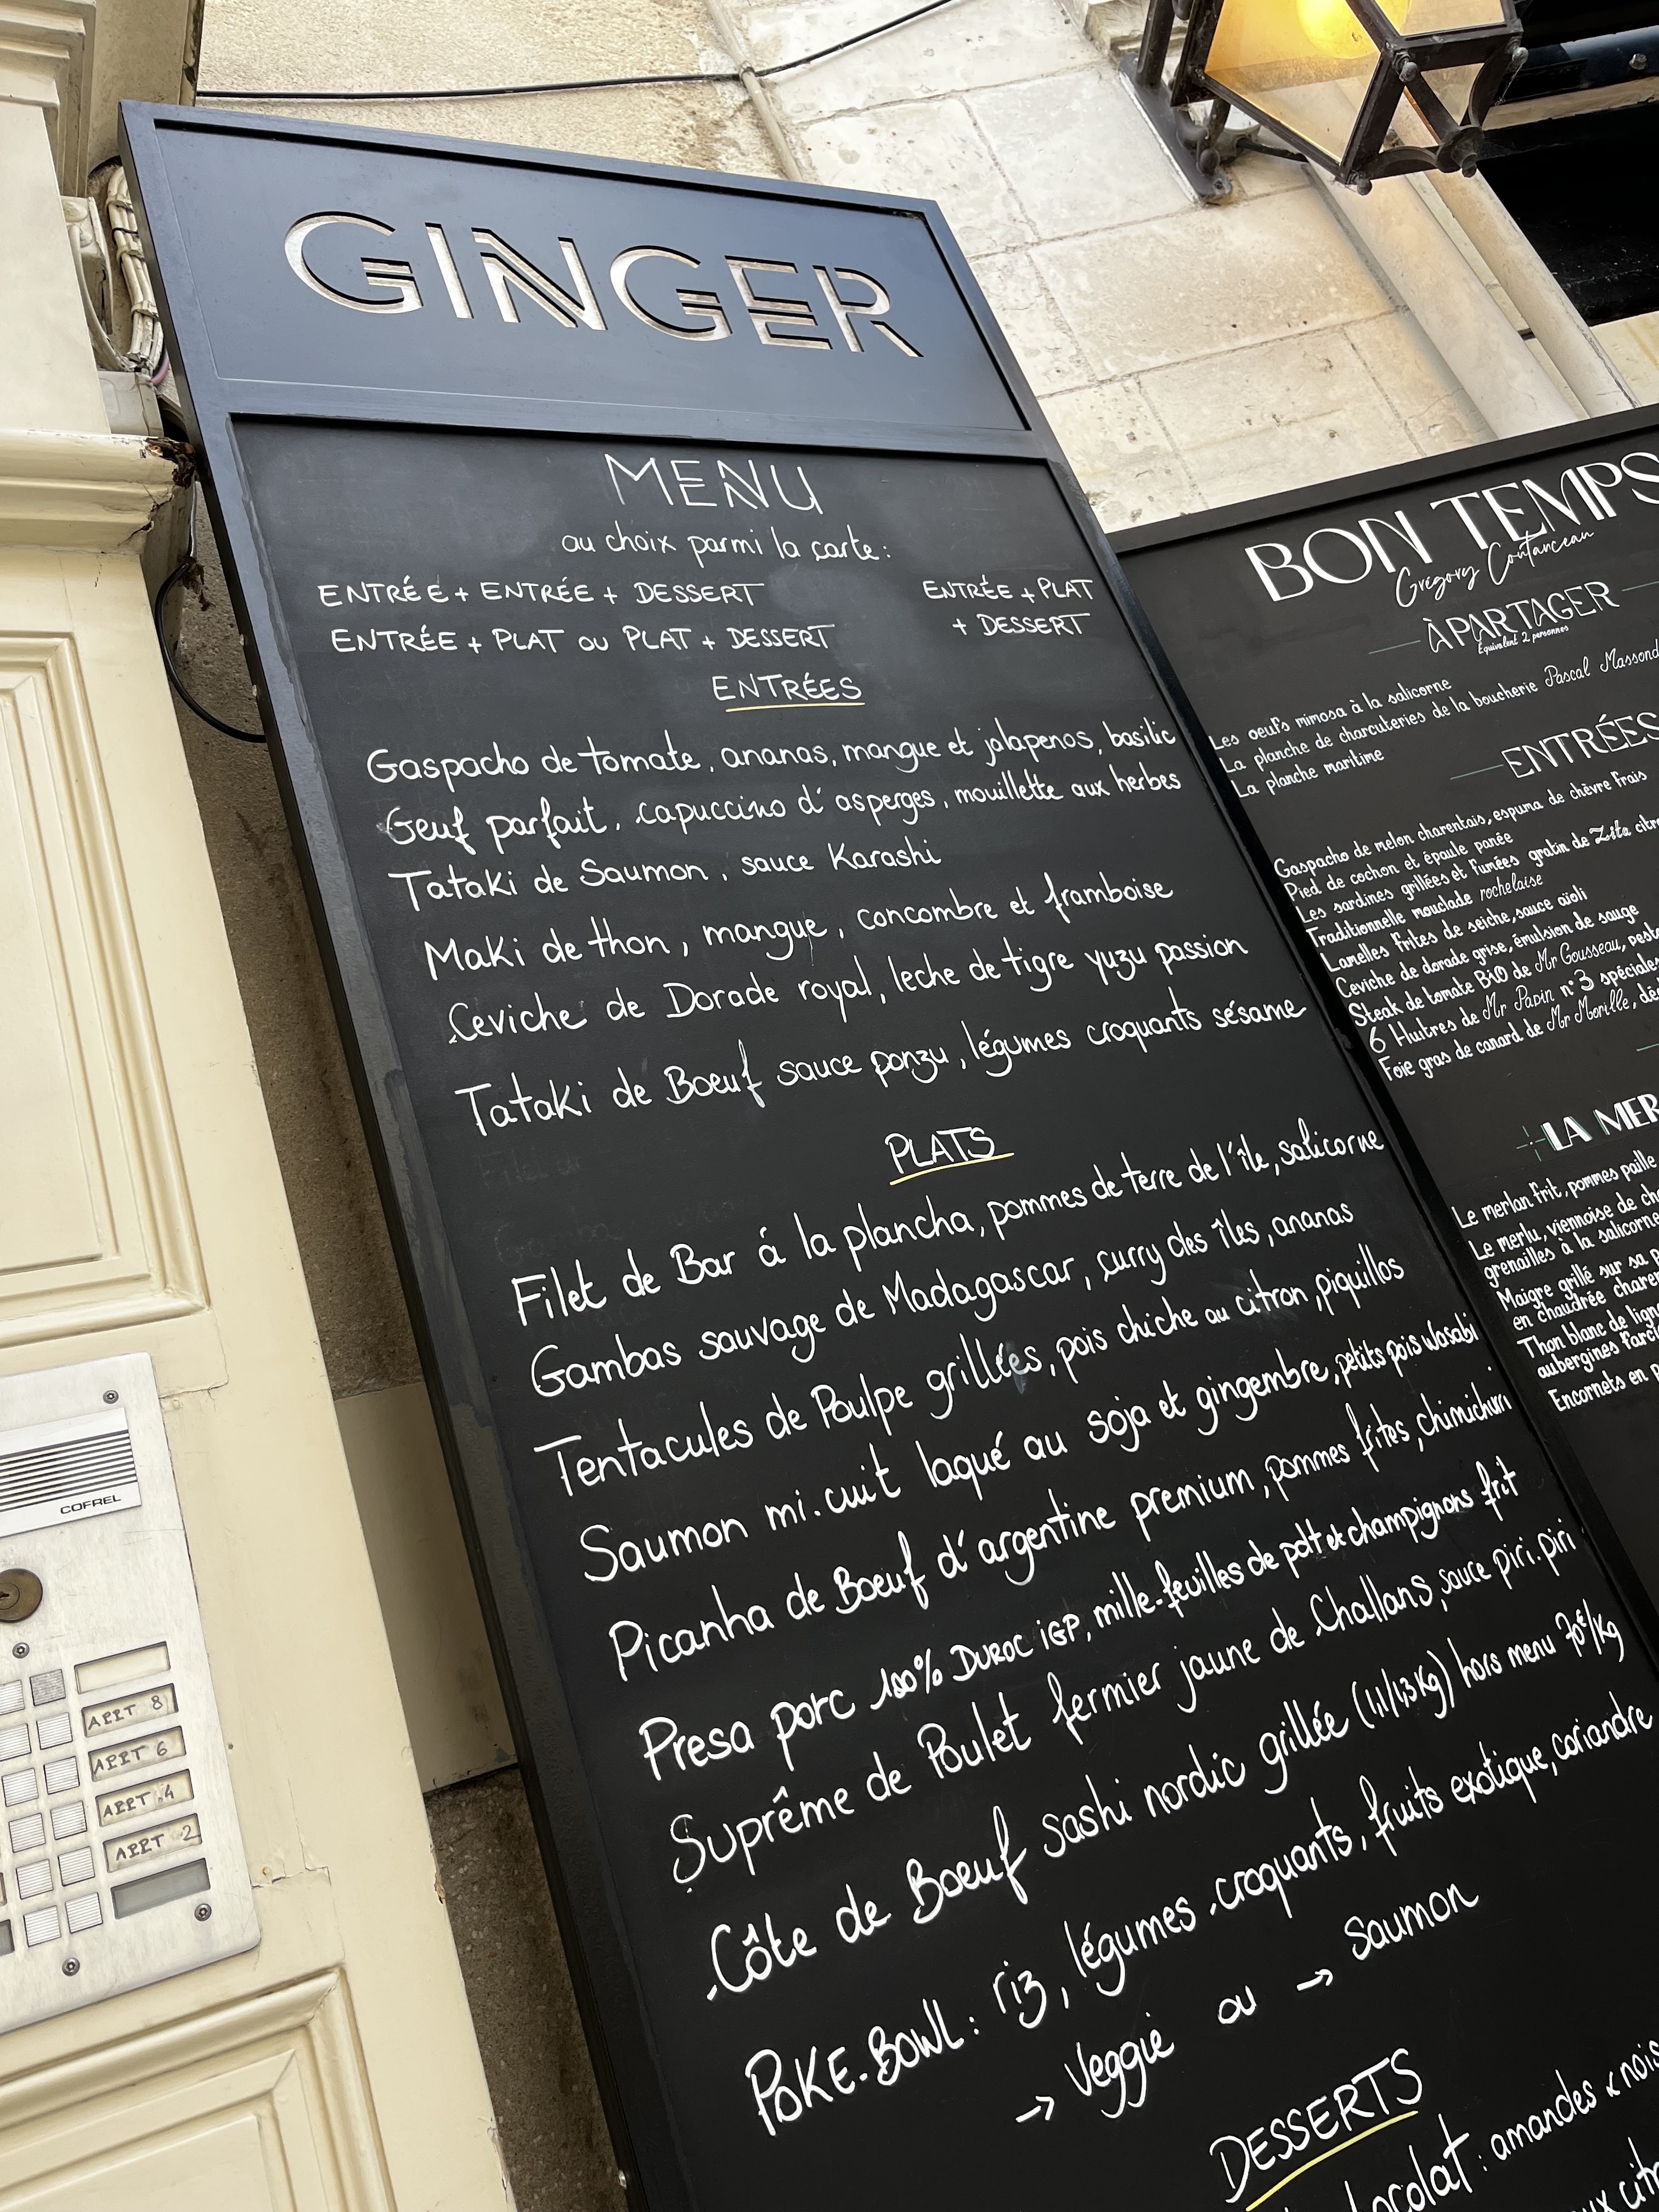 GINGER
MENU
au choix parmi la carte:
ENTRÉE + ENTRÉE + DESSERT
ENTRÉE + PLAT ou PLAT + DESSERT
ENTRÉE + PLAT
+ DESSERT
ENTRÉES
Gaspacho de tomate, ananas, mangue et jalapenos, basilic
Oeuf parfait, capuccino d'asperges, mouillette aux herbes
Tataki de Saumon, sauce Karashi
Maki de thon, mangue, concombre et framboise
Ceviche de Dorade royal, leche de tigre yuzu passion
Tataki de Boeuf sauce ponzu, légumes croquants sésame
PLATS
Filet de Bar á la plancha, pommes de terre de l'île, salicorne
Gambas sauvage de Madagascar, curry des îles, ananas
Tentacules de Poulpe grillées, pois chiche au citron, piquillos
Saumon mi.cuit laqué au soja et gingembre, petits pois wasabi
Picanha de Boeuf d'argentine premium, pommes frites, chimichurri
Presa porc 100% DUROC iGP, mille-feuilles de pdt et champignons frit
Suprême de Poulet fermier jaune de Challans, sauce piri.piri
Côte de Boeuf sashi nordic grillée (1,1/1,3Kg) hors menu 70€/Kg
POKE.BOWL: riz, légumes croquants, fruits exotique, coriandre
→ Veggie ou → Saumon
DESSERTS
: amandes & nois
BON TEMPS
Grégory Coutanceau
À PARTAGER
Équivalent 2 personnes
Les oeufs mimosa à la salicorne
La planche de charcuteries de la boucherie Pascal Massond
La planche maritime
ENTRÉES
Gaspacho de melon charentais, espuma de chèvre frais
Pied de cochon et épaule panée
Les sardines grillées et fumées gratin de Zita citro
Traditionnelle mouclade rochelaise
Lamelles frites de seiche, sauce aïoli
Ceviche de dorade grise, émulsion de sauge
Steak de tomate BiO de Mr Gousseau, pesto
6 Huitres de Mr Papin n°3 spéciales
Foie gras de canard de Mr Morille,
LA MER
Le merlan frit, pommes paille
Le merlu, viennoise de
grenailles à la salicorne
Maigre grillé sur sa
en chaudrée
Thon blanc de
aubergines
Encornets en
COFREL
APPT 8
APPT 6
APPT 4
APPT 2